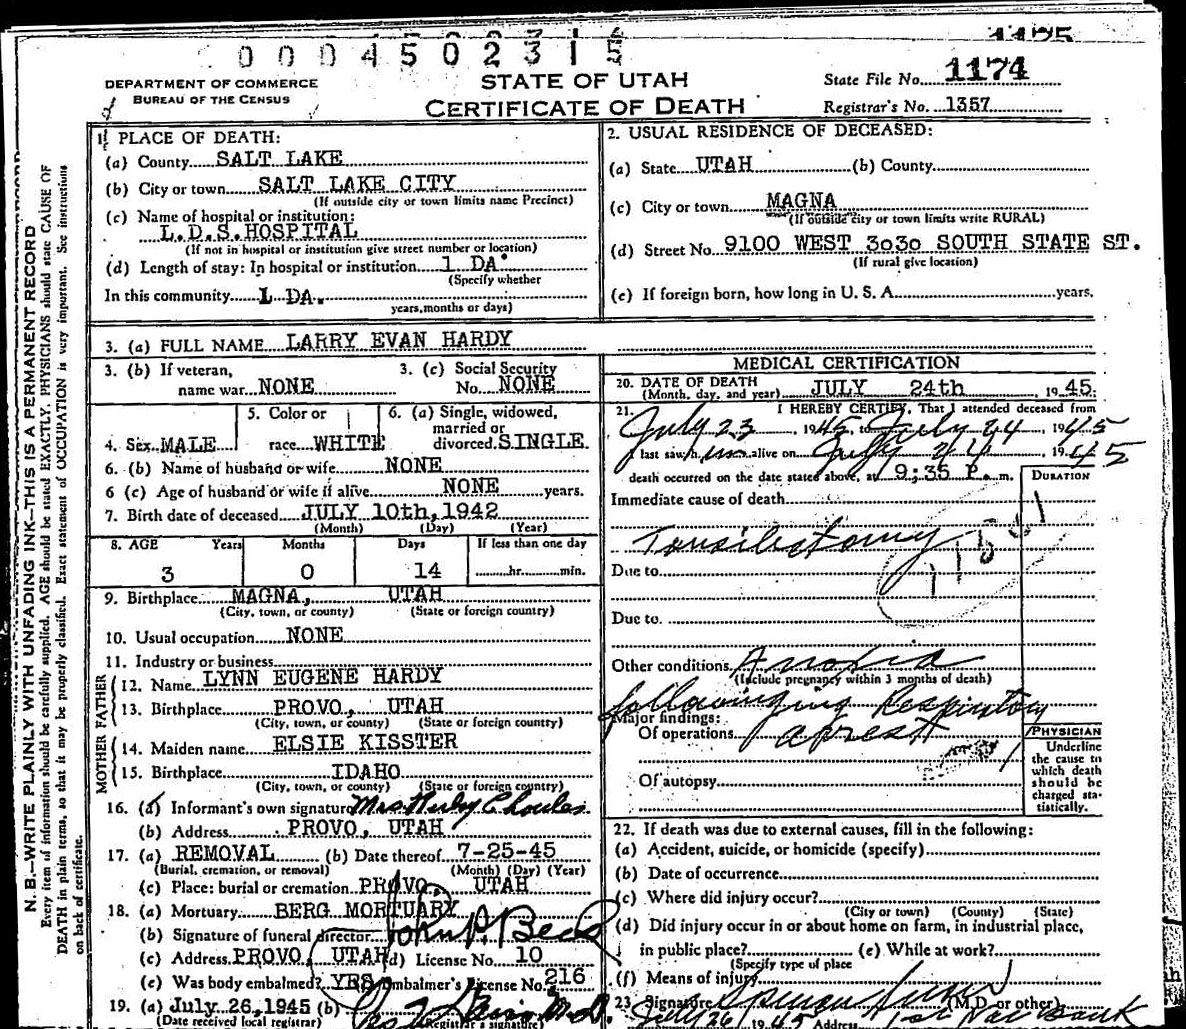 1175
0004502315
DEPARTMENT OF COMMERCE
BUREAU OF THE CENSUS
STATE OF UTAH
CERTIFICATE OF DEATH
State File No. 1174
Registrar's No. 1357
N. B.—WRITE PLAINLY WITH UNFADING INK—THIS IS A PERMANENT RECORD
Every item of information should be carefully supplied. AGE should be stated EXACTLY. PHYSICIANS should state CAUSE OF
DEATH in plain terms, so that it may be properly classified. Exact statement of OCCUPATION is very important. See instructions
on back of certificate.
1. PLACE OF DEATH:
(a) County SALT LAKE
(b) City or town SALT LAKE CITY
(If outside city or town limits name Precinct)
(c) Name of hospital or institution:
L.D.S. HOSPITAL
(If not in hospital or institution give street number or location)
(d) Length of stay: In hospital or institution 1 DA.
(Specify whether
In this community 1 DA.
years, months or days)
2. USUAL RESIDENCE OF DECEASED:
(a) State UTAH (b) County
(c) City or town MAGNA
(If outside city or town limits write RURAL)
(d) Street No. 9100 WEST 3030 SOUTH STATE ST.
(If rural give location)
(e) If foreign born, how long in U. S. A. years.
3. (a) FULL NAME LARRY EVAN HARDY
3. (b) If veteran, name war NONE
3. (c) Social Security No. NONE
4. Sex MALE
5. Color or race WHITE
6. (a) Single, widowed, married or divorced. SINGLE
6. (b) Name of husband or wife NONE
6 (c) Age of husband or wife if alive NONE years.
7. Birth date of deceased JULY 10th, 1942
(Month) (Day) (Year)
8. AGE Years Months Days If less than one day
3 0 14 hr. min.
9. Birthplace MAGNA, UTAH
(City, town, or county) (State or foreign country)
10. Usual occupation NONE
11. Industry or business
FATHER
12. Name LYNN EUGENE HARDY
13. Birthplace PROVO, UTAH
(City, town, or county) (State or foreign country)
MOTHER
14. Maiden name ELSIE KISSTER
15. Birthplace IDAHO
(City, town, or county) (State or foreign country)
16. (a) Informant's own signature Mrs
(b) Address PROVO, UTAH
17. (a) REMOVAL (b) Date thereof 7-25-45
(Burial, cremation, or removal) (Month) (Day) (Year)
(c) Place: burial or cremation PROVO, UTAH
18. (a) Mortuary BERG MORTUARY
(b) Signature of funeral director John P. Beck
(c) Address PROVO, UTAH (d) License No. 10
(e) Was body embalmed? YES Embalmer's License No. 216
19. (a) July 26, 1945 (b) M.D.
(Date received local registrar) (Registrar's signature)
MEDICAL CERTIFICATION
20. DATE OF DEATH JULY 24th 1945.
(Month, day, and year)
21. I HEREBY CERTIFY, That I attended deceased from
July 23, 1945 to July 24, 1945
I last saw him alive on July 24 1945
death occurred on the date stated above, at 9:35 P. m.
DURATION
Immediate cause of death
Tonsilectomy
Due to
Due to
Other conditions Anoxia
(Include pregnancy within 3 months of death)
following Respiratory
Major findings:
Of operations arrest
Of autopsy
PHYSICIAN
Underline
the cause to
which death
should be
charged sta-
tistically.
22. If death was due to external causes, fill in the following:
(a) Accident, suicide, or homicide (specify)
(b) Date of occurrence
(c) Where did injury occur?
(City or town) (County) (State)
(d) Did injury occur in or about home on farm, in industrial place,
in public place? (e) While at work?
(Specify type of place
(f) Means of injury
23. Signature (M.D. or other)
July 26, 1945 Address